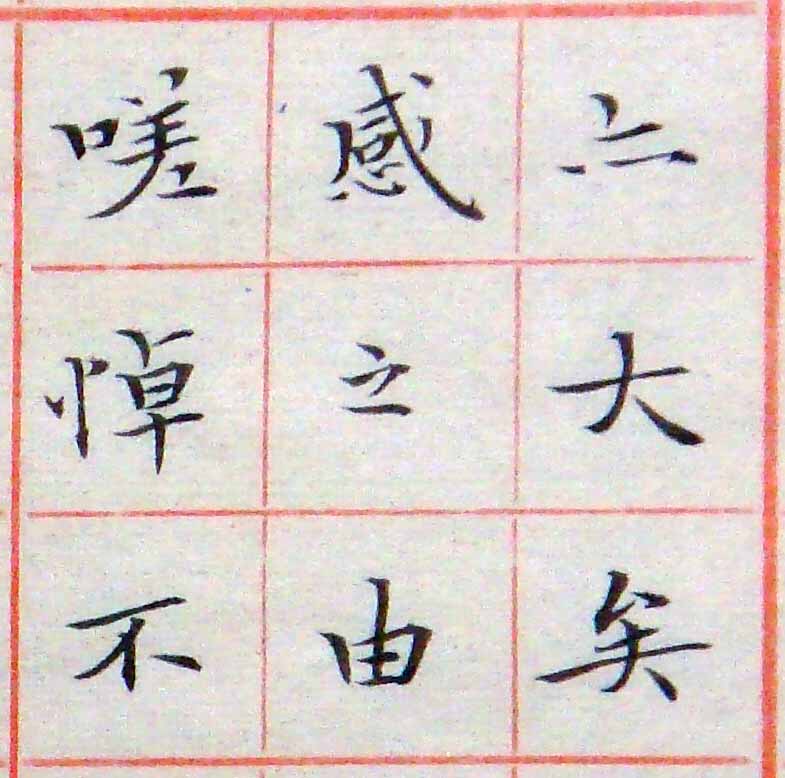 亦大矣
感之由
嗟悼不